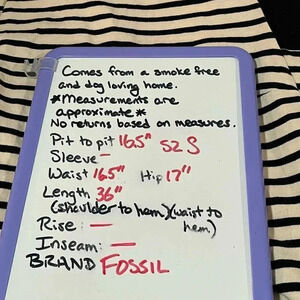 Comes from a smoke free
and dog loving home.
*Measurements are
approximate*
No returns based on measures.
Pit to pit 16.5" SZ S
Sleeve -
Waist 16.5" Hip 17"
Length 36"
(shoulder to hem)(waist to
hem)
Rise: -
Inseam: -
BRAND FOSSIL